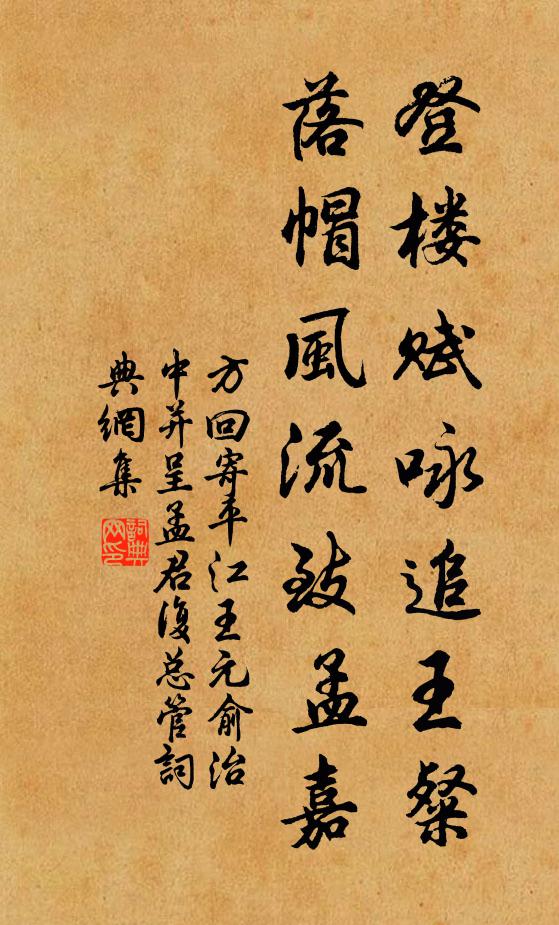 登楼赋咏追王粲
落帽風流致孟嘉
方回寄平江王元俞治
中并呈孟君復总管詞
典網集
詞典
网印